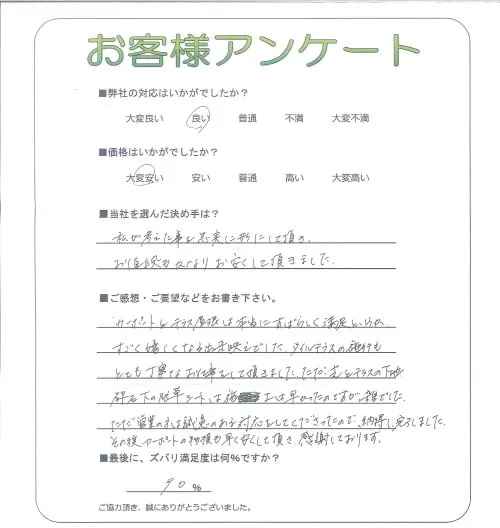 お客様アンケート
■弊社の対応はいかがでしたか？
大変良い 良い 普通 不満 大変不満
■価格はいかがでしたか？
大変安い 安い 普通 高い 大変高い
■当社を選んだ決め手は？
私が考えた事を忠実に形にして頂き、
お値段もかなりお安くして頂きました。
■ご感想・ご要望などをお書き下さい。
カーポートとテラス屋根は本当にすばらしく満足というか
すごく嬉しくなる出来映えでした。タイルテラスの施行も
とても丁寧なお仕事をして頂きました。ただ、とテラスの下地
砕石下の防草シートは早かったのですが雑でした。
ただ営業の方は誠意のある対応をしてくださったので、納得し完了しました。
その後カーポートの も早く安くして頂き、感謝しております。
■最後に、ズバリ満足度は何％ですか？
90 %
ご協力頂き、誠にありがとうございました。